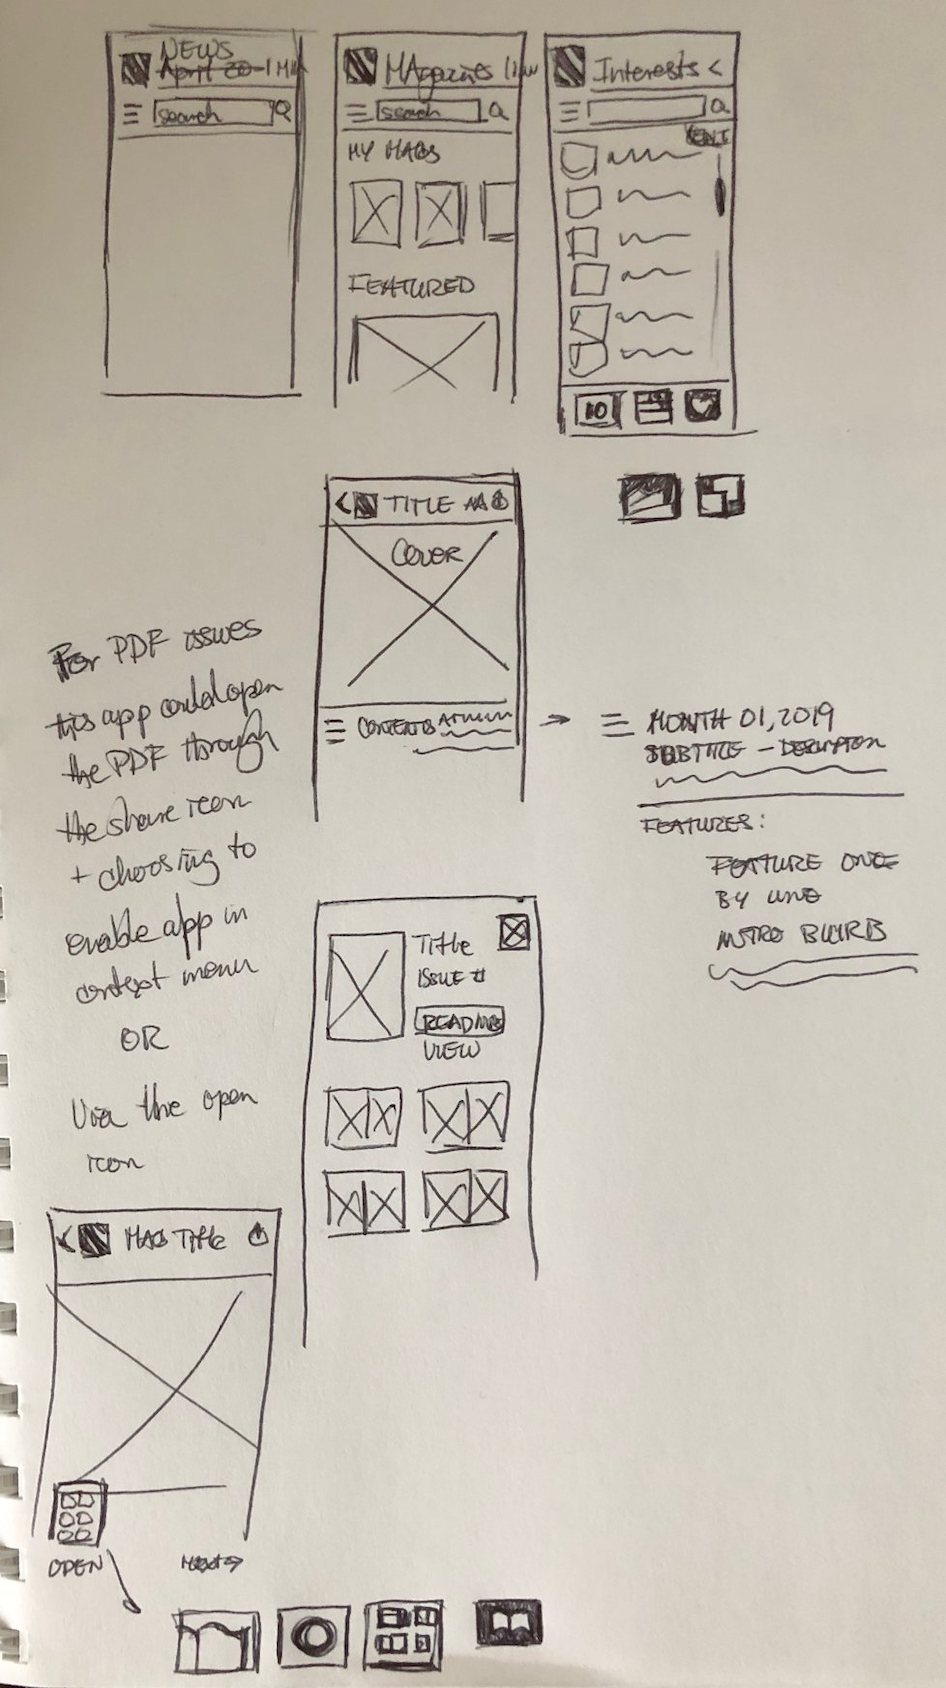 NEWS
search
MAgazines
search
MY MAGS
FEATURED
Interests <
< TITLE AA
COVER
CONTENTS
MONTH 01, 2019
SUBTITLE - DESCRIPTION
FEATURES:
FEATURE ONE
BY LINE
INTRO BLURB
For PDF issues
this app could open
the PDF through
the share icon
+ choosing to
enable app in
context menu
OR
Via the open
icon
Title
ISSUE #
READING
VIEW
< MAG Title
OPEN